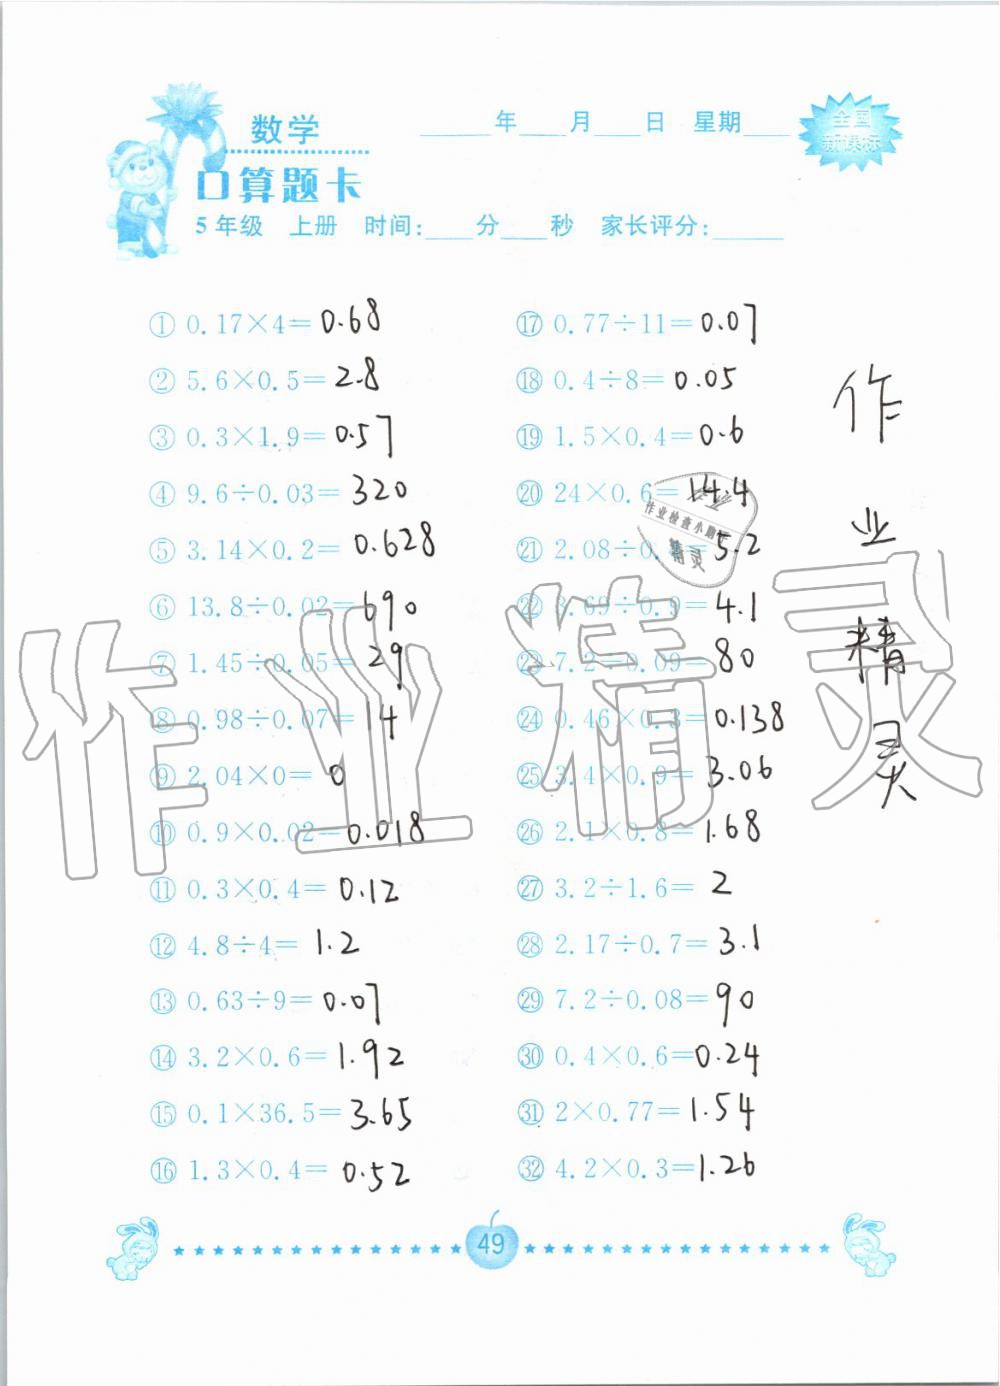 数学
____年____月____日 星期____
全国
新课标
口算题卡
5年级 上册 时间:____分____秒 家长评分:______
① 0.17×4=0.68
② 5.6×0.5=2.8
③ 0.3×1.9=0.57
④ 9.6÷0.03=320
⑤ 3.14×0.2=0.628
⑥ 13.8÷0.02=690
⑦ 1.45÷0.05=29
⑧ 0.98÷0.07=14
⑨ 2.04×0=0
⑩ 0.9×0.02=0.018
⑪ 0.3×0.4=0.12
⑫ 4.8÷4=1.2
⑬ 0.63÷9=0.07
⑭ 3.2×0.6=1.92
⑮ 0.1×36.5=3.65
⑯ 1.3×0.4=0.52
⑰ 0.77÷11=0.07
⑱ 0.4÷8=0.05
⑲ 1.5×0.4=0.6
⑳ 24×0.6=14.4
㉑ 2.08÷0.=5.2
㉒ 3.69÷0.9=4.1
㉓ 7.2÷0.09=80
㉔ 0.46×0.3=0.138
㉕ 3.4×0.9=3.06
㉖ 2.1×0.8=1.68
㉗ 3.2÷1.6=2
㉘ 2.17÷0.7=3.1
㉙ 7.2÷0.08=90
㉚ 0.4×0.6=0.24
㉛ 2×0.77=1.54
㉜ 4.2×0.3=1.26
作
业
精
灵
作业检查小助手
精灵
作业精灵
49